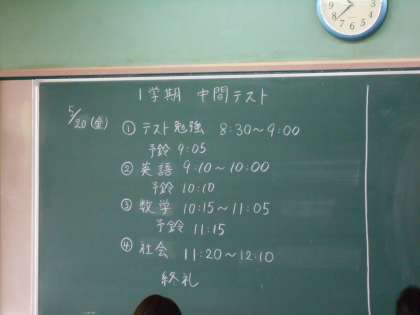 1学期 中間テスト
5/20(金)
① テスト勉強 8:30〜9:00
予鈴 9:05
② 英語 9:10〜10:00
予鈴 10:10
③ 数学 10:15〜11:05
予鈴 11:15
④ 社会 11:20〜12:10
終礼